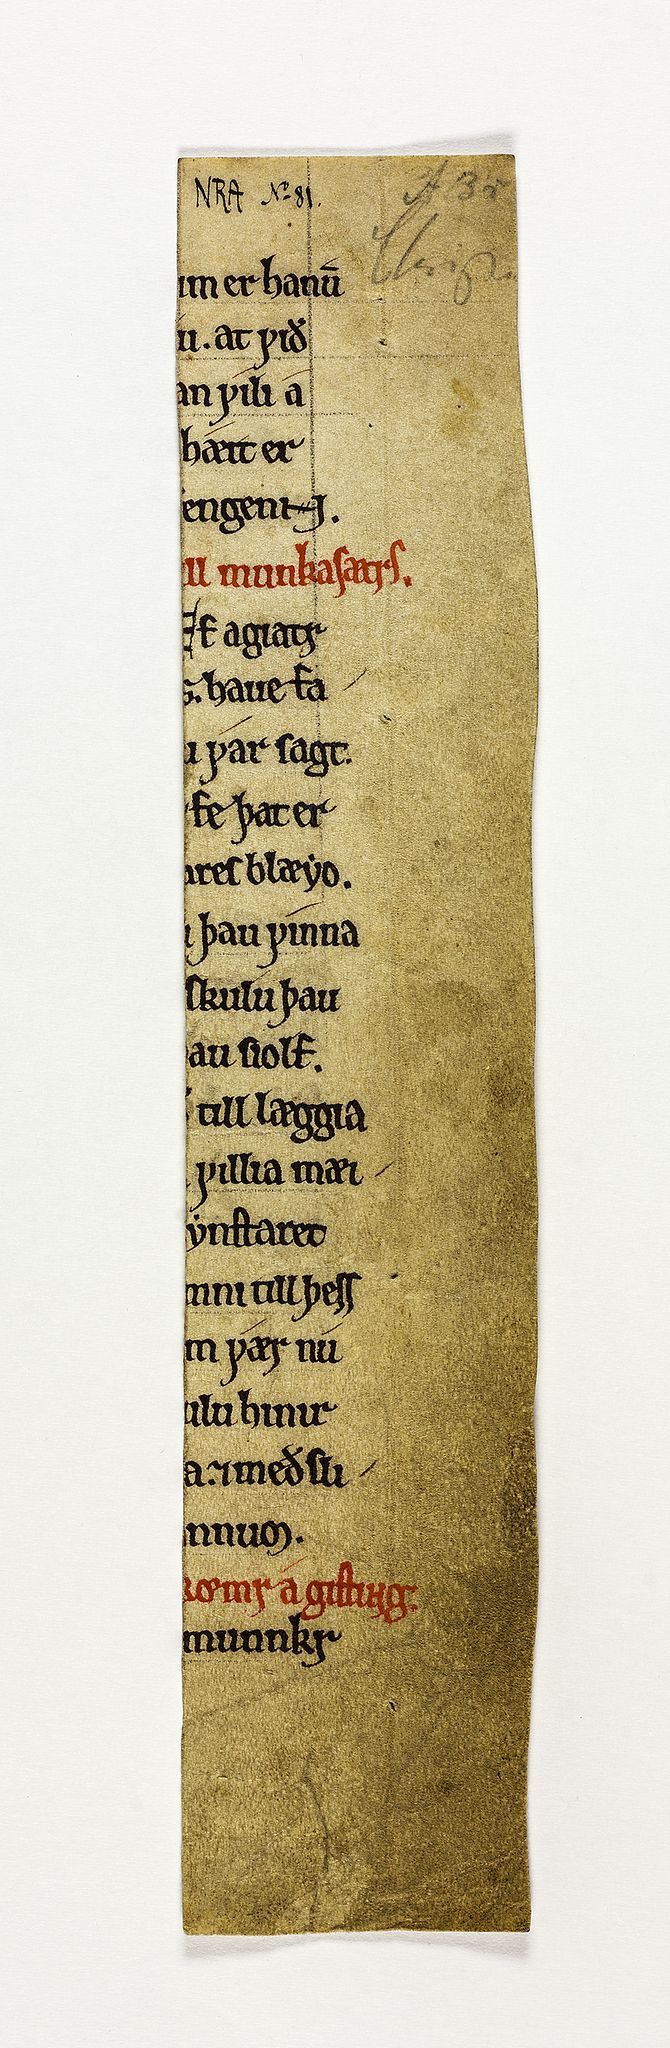 NRA No 81.
A 35
um er hanū
u. at ꝩið
an ꝩili a
hætt er
engeni J.
ill munkasætrſ.
Ef agiatr
s. haue fa
u ꝩar sagt.
fe þat er
aref blæẏo.
u þau ꝩinna
skulu þau
au siolf.
till læggia
ꝩillia mæi
ẏnſtaret
inni till þeſſ
m ꝩær nu
ulu hinir
a. ⁊ með sli
nnum.
rœmr a giſting.
munnkr